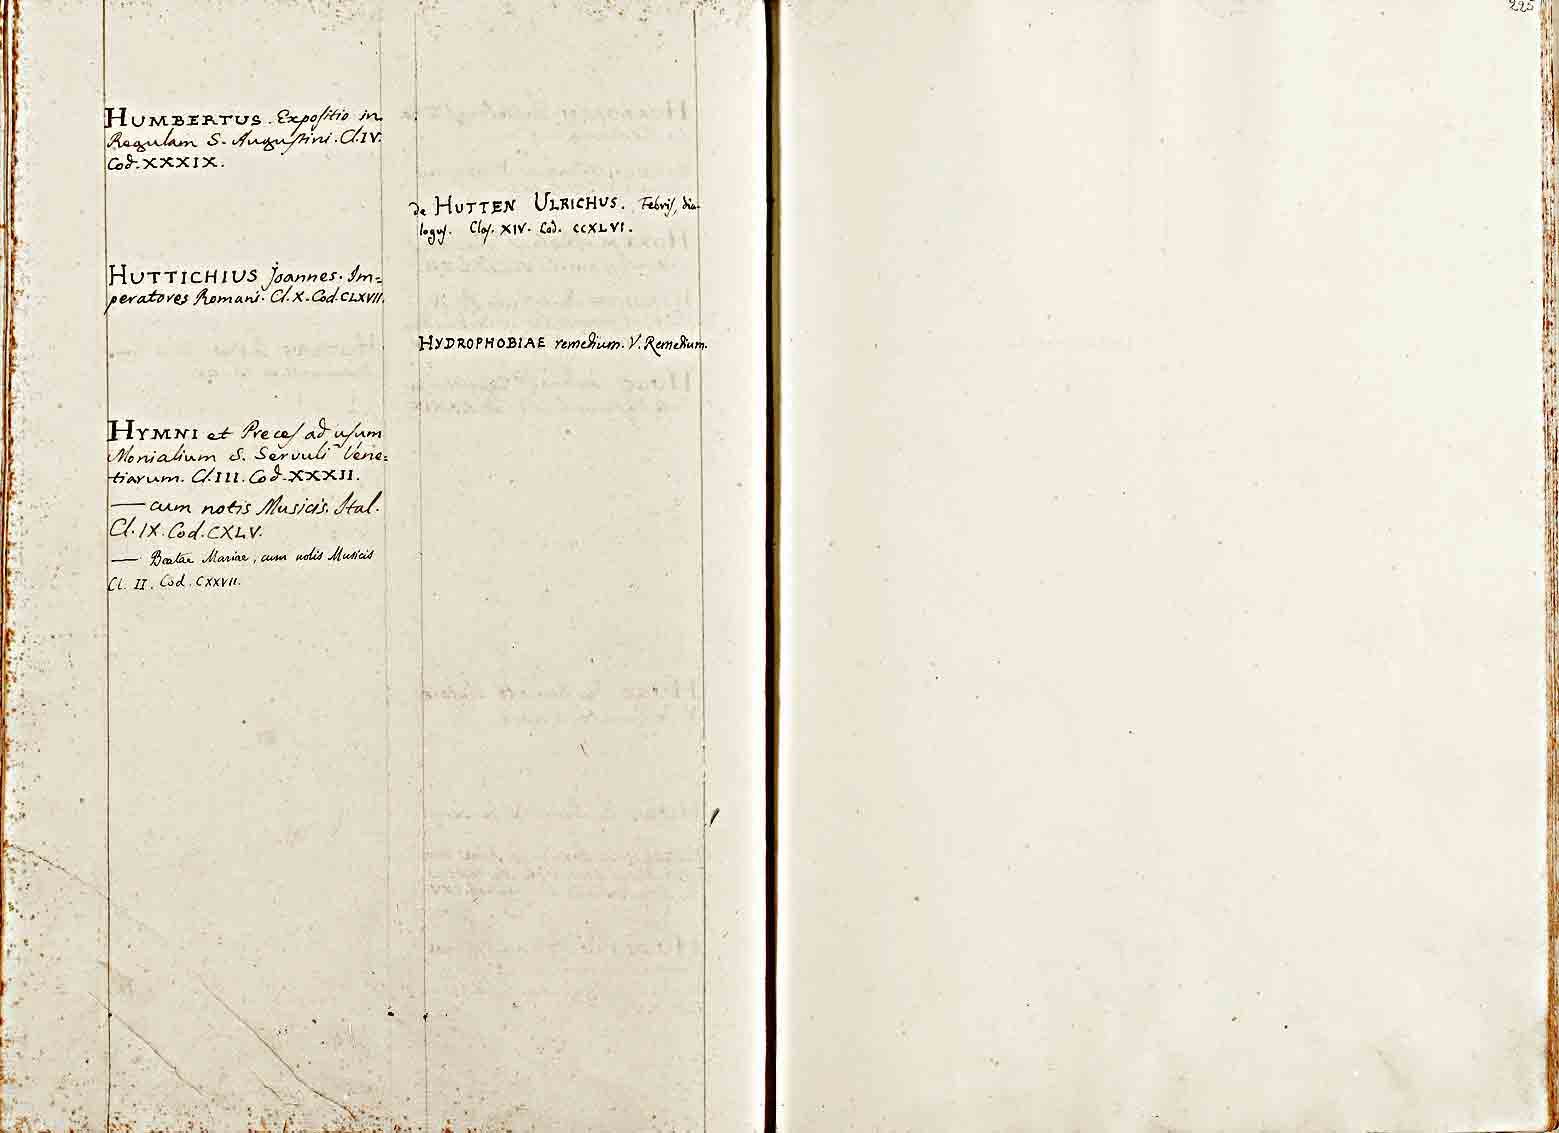 HUMBERTUS. Expositio in
Regulam S. Augustini. Cl. IV.
Cod. XXXIX.
HUTTICHIUS Joannes. Im=
peratores Romani. Cl. X. Cod. CLXVII.
HYMNI et Preces ad usum
Monialium S. Servuli Vene=
tiarum. Cl. III. Cod. XXXII.
— cum notis Musicis. Ital.
Cl. IX. Cod. CXLV.
— Beatae Mariae, cum notis Musicis
Cl. II. Cod. CXXVII.
de HUTTEN ULRICHUS. Febris, dia-
logus. Clas. XIV. Cod. CCXLVI.
HYDROPHOBIAE remedium. V. Remedium.
225